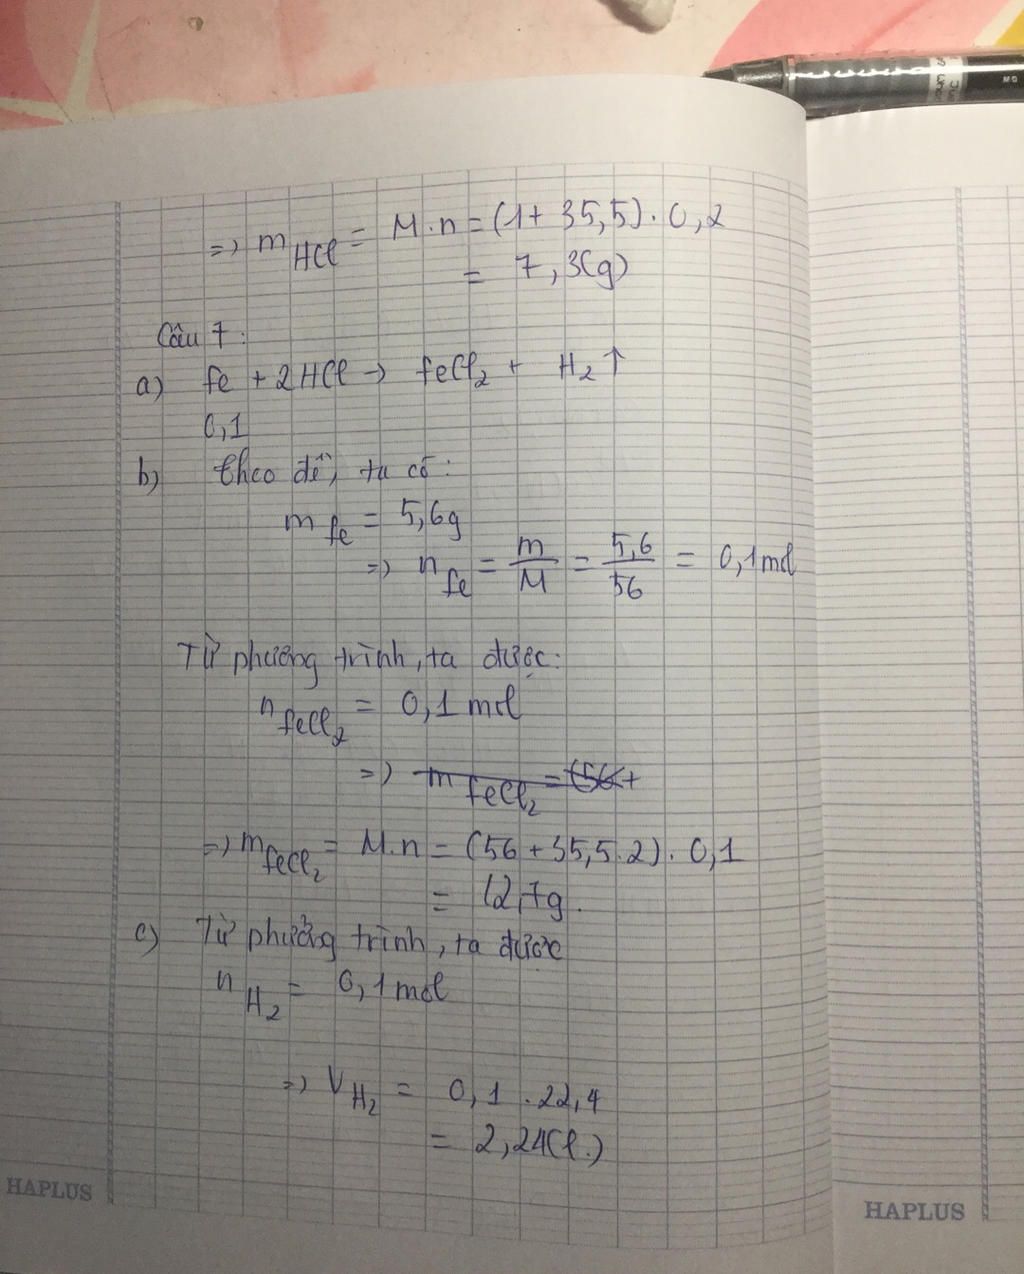 => m HCl = M.n = (1 + 35,5). 0,2
= 7,3(g)
Câu 7:
a) Fe + 2HCl → FeCl₂ + H₂↑
0,1
b) Theo đề, ta có:
m Fe = 5,6g
=> n Fe = m/M = 5,6/56 = 0,1 mol
Từ phương trình, ta được:
n FeCl₂ = 0,1 mol
=> m FeCl₂ = (56+
=> m FeCl₂ = M.n = (56 + 35,5.2). 0,1
= 12,7g.
c) Từ phương trình, ta được
n H₂ = 0,1 mol
=> V H₂ = 0,1 . 22,4
= 2,24(l.)
HAPLUS
HAPLUS